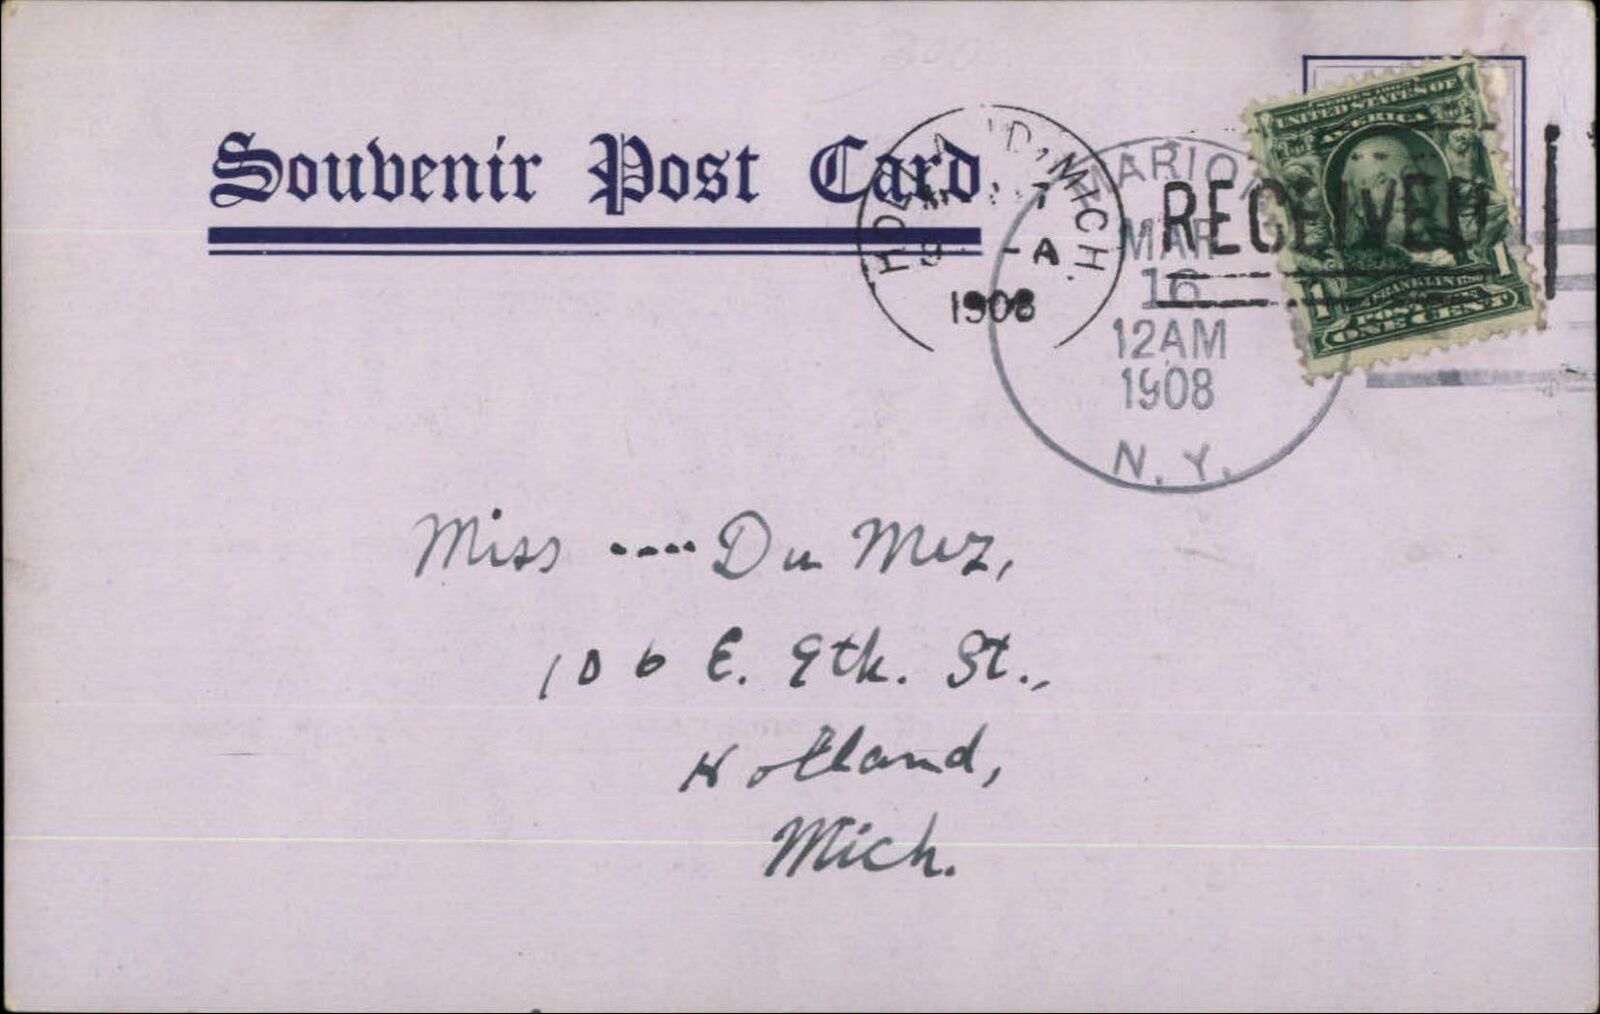 Souvenir Post Card
HOLLAND, MICH.
-A
1908
MARION
MAR
16
12AM
1908
N.Y.
RECEIVED
UNITED STATES OF
AMERICA
FRANKLIN
1 1
POSTAGE
ONE CENT
Miss ---- Du Mez,
106 E. 9th. St.,
Holland,
Mich.